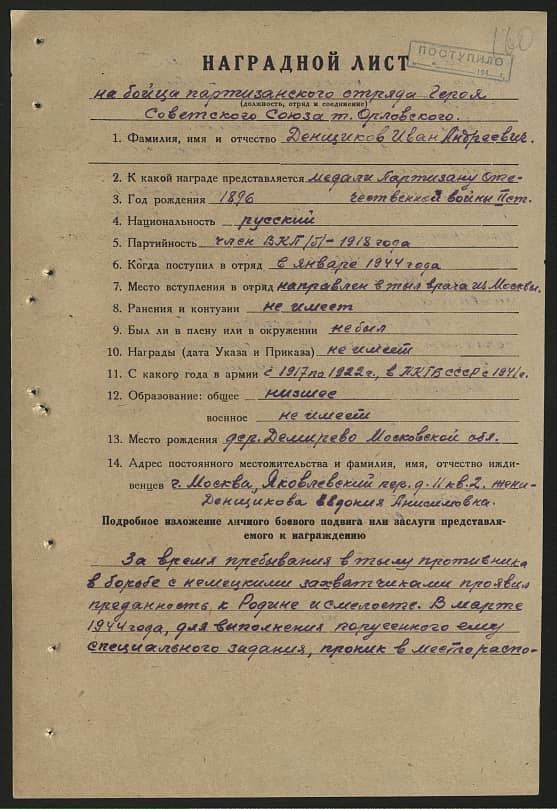 160
ПОСТУПИЛО
НАГРАДНОЙ ЛИСТ
на бойца партизанского отряда Героя
(должность, отряд и соединение)
Советского Союза т. Орловского.
1. Фамилия, имя и отчество Денщиков Иван Андреевич.
2. К какой награде представляется медали Партизану Оте-
3. Год рождения 1896 чественной войны II ст.
4. Национальность русский
5. Партийность член ВКП/б/ - 1918 года
6. Когда поступил в отряд в январе 1944 года
7. Место вступления в отряд направлен в тыл врага из Москвы.
8. Ранения и контузии не имеет
9. Был ли в плену или в окружении не был
10. Награды (дата Указа и Приказа) не имеет
11. С какого года в армии с 1917 по 1922 г., в НКГБ СССР с 1941 г.
12. Образование: общее низшее
военное не имеет
13. Место рождения дер. Демирево Московской обл.
14. Адрес постоянного местожительства и фамилия, имя, отчество ижди-
венцев г. Москва, Яковлевский пер. д. 11 кв. 2. жена -
Денщикова Евдокия Анисимовна.
Подробное изложение личного боевого подвига или заслуги представля-
емого к награждению
За время пребывания в тылу противника
в борьбе с немецкими захватчиками проявил
преданность к Родине и смелость. В марте
1944 года, для выполнения порученного ему
специального задания, проник в место распо-